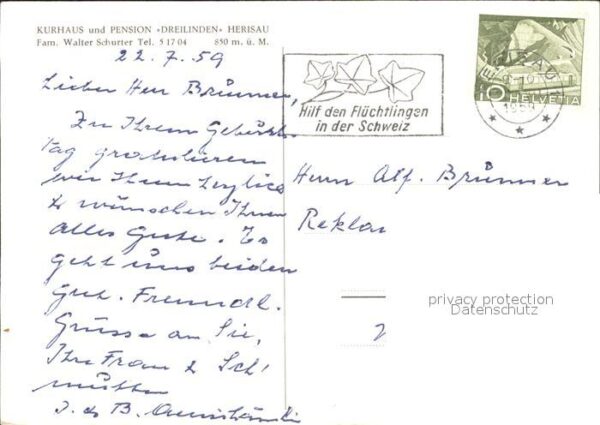 KURHAUS und PENSION «DREILINDEN» HERISAU
Fam. Walter Schurter Tel. 5 17 04 850 m. ü. M.
22.7.59
Lieber Herr Brunner,
Zu Ihrem Geburts-
tag gratulieren
wir Ihnen herzlich
& wünschen Ihnen
alles Gute. Es
geht uns beiden
gut. Freundl.
Grüsse an Sie,
Ihre Frau &
Hilf den Flüchtlingen
in der Schweiz
HERISAU
10 HELVETIA
Herrn Alf. Brunner
privacy protection
Datenschutz